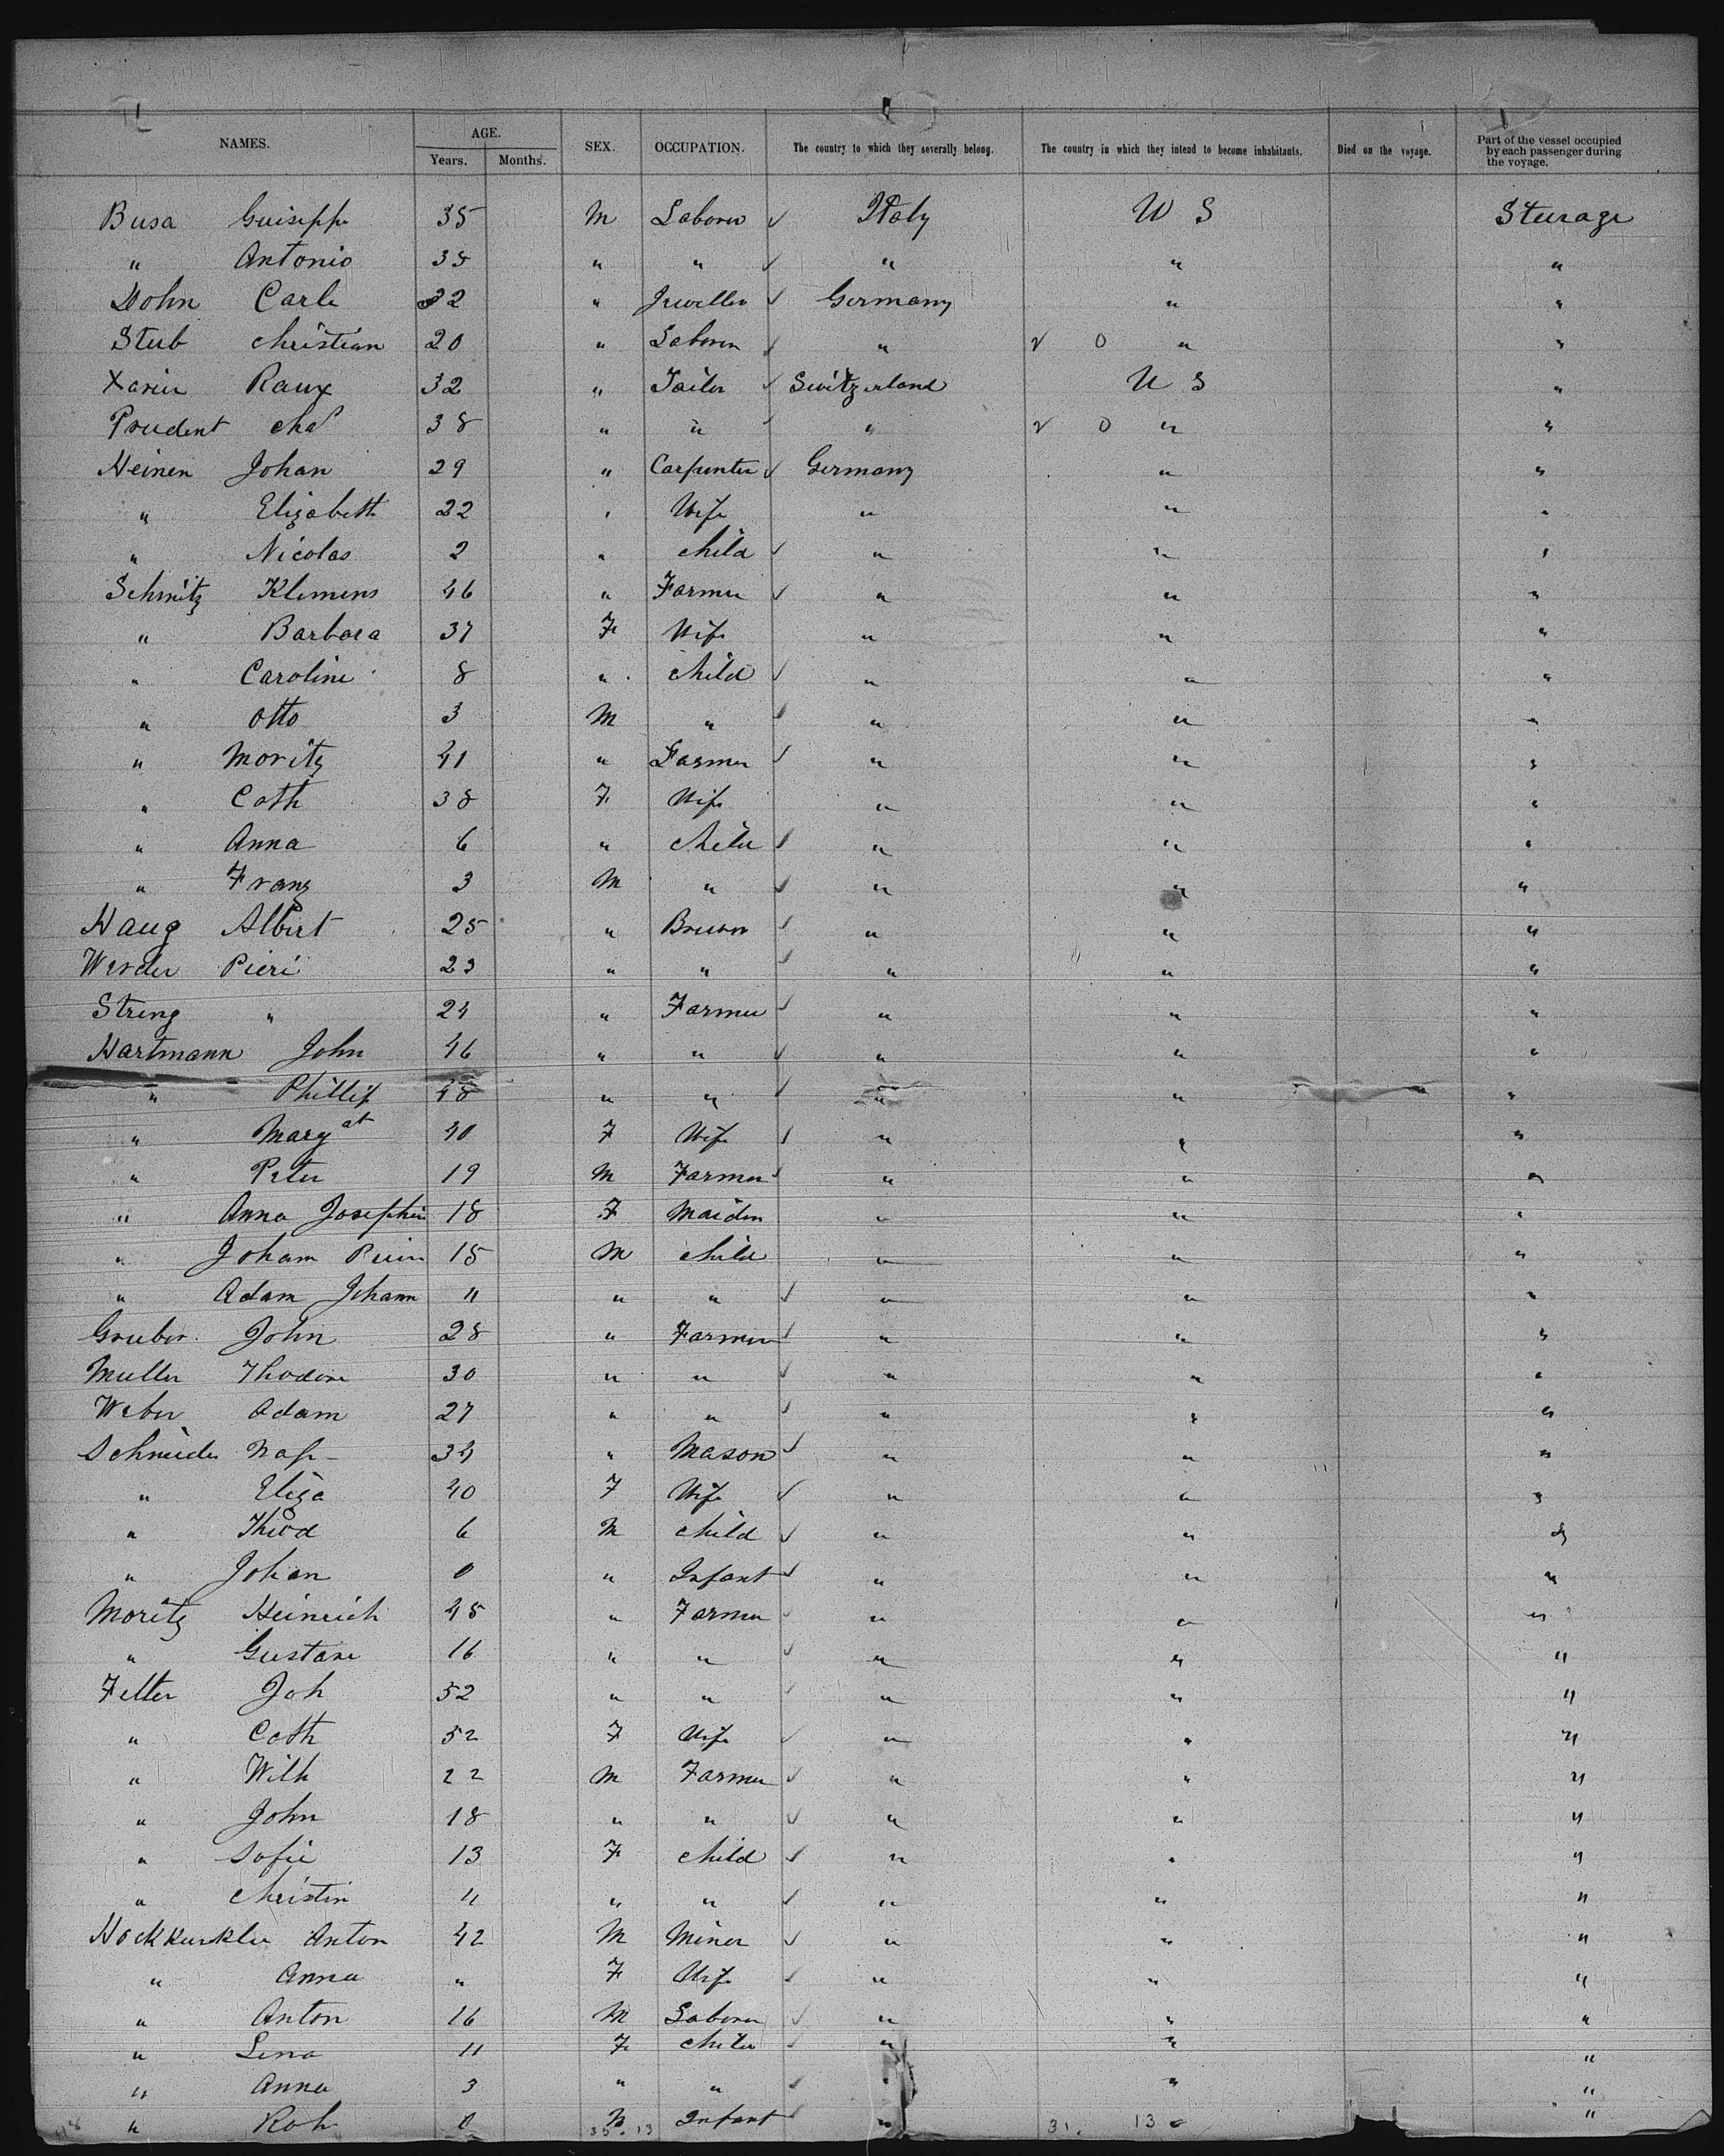 NAMES. AGE. Years. Months. SEX. OCCUPATION. The country to which they severally belong. The country in which they intend to become inhabitants. Died on the voyage. Part of the vessel occupied by each passenger during the voyage.
Busa Guiseppe 35 M Laborer ✓ Italy U S Steerage
" Antonio 38 " " ✓ " " "
Dohn Carle 32 " Jweller ✓ Germany " "
Steib Christian 20 " Laborer ✓ " " "
Xavier Raux 32 " Tailor ✓ Switzerland U S "
Prudent Cha 38 " " ✓ " " "
Heinen Johan 29 " Carpenter ✓ Germany " "
" Elizabeth 22 " Wife " " "
" Nicolas 2 " Child ✓ " " "
Schmitz Klemens 46 " Farmer ✓ " " "
" Barbara 37 F Wife " " "
" Caroline 8 " Child ✓ " " "
" Otto 3 M " ✓ " " "
" Moritz 41 " Farmer ✓ " " "
" Cath 38 F Wife " " "
" Anna 6 " Child ✓ " " "
" Franz 3 M " ✓ " " "
Haug Albert 25 " Brewer ✓ " " "
Werder Pieri 23 " " ✓ " " "
Streng " 24 " Farmer ✓ " " "
Hartmann John 46 " " ✓ " " "
" Phillip 48 " " ✓ " " "
" Margat 40 F Wife ✓ " " "
" Peter 19 M Farmer ✓ " " "
" Anna Josephin 18 F Maiden " " "
" Joham 15 M Child " " "
" Adam Johann 11 " " ✓ " " "
Gruber John 28 " Farmer ✓ " " "
Muller Thodore 30 " " ✓ " " "
Weber Adam 27 " " ✓ " " "
Schneider Nap 34 " Mason ✓ " " "
" Eliza 40 F Wife ✓ " " "
" Theod 6 M Child ✓ " " "
" Johan 0 " Infant ✓ " " "
Moritz Heinrich 45 " Farmer ✓ " " "
" Gustave 16 " " ✓ " " "
Felter Joh 52 " " ✓ " " "
" Cath 52 F Wife ✓ " " "
" Wilh 22 M Farmer ✓ " " "
" John 18 " " ✓ " " "
" Sofie 13 F Child ✓ " " "
" Christin 11 " " ✓ " " "
Anton 42 M Miner ✓ " " "
" Anna " F Wife ✓ " " "
" Anton 16 M Laborer ✓ " " "
" Lena 11 F Child ✓ " " "
" Anna 3 " " ✓ " " "
" Roh 0 M Infant ✓ " "
35. 13 31. 13